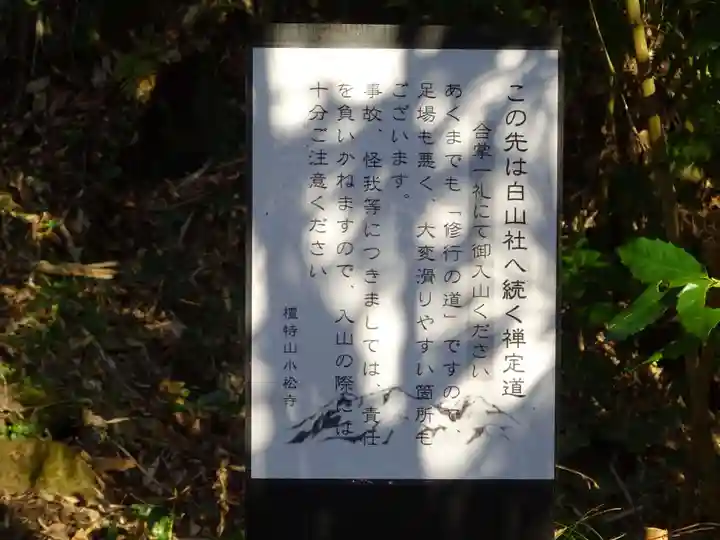 この先は白山社へ続く禅定道
合掌一礼にて御入山ください
あくまでも「修行の道」ですので、
足場も悪く、大変滑りやすい箇所も
ございます。
事故、怪我等につきましては、責任
を負いかねますので、入山の際には
十分ご注意ください
檀特山小松寺